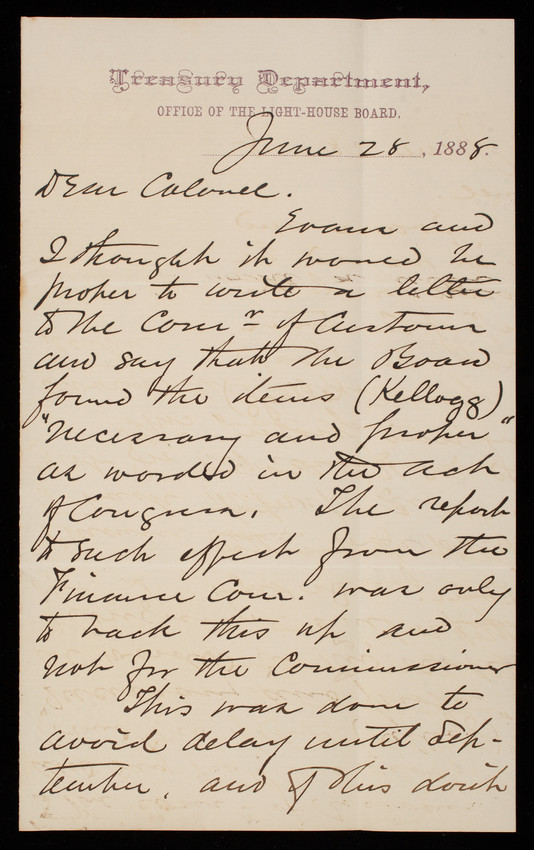 Treasury Department,
OFFICE OF THE LIGHT-HOUSE BOARD.
June 28, 1888.
Dear Colonel.
Evans and
I thought it would be
proper to write a letter
to the Comr. of Customs
and say that the Board
found the items (Kellogg)
"necessary and proper"
as worded in the act
of Congress. The report
to such effect from the
Finance Com. was only
to back this up and
not for the Commissioner
This was done to
avoid delay until Sep-
tember, and if this don't